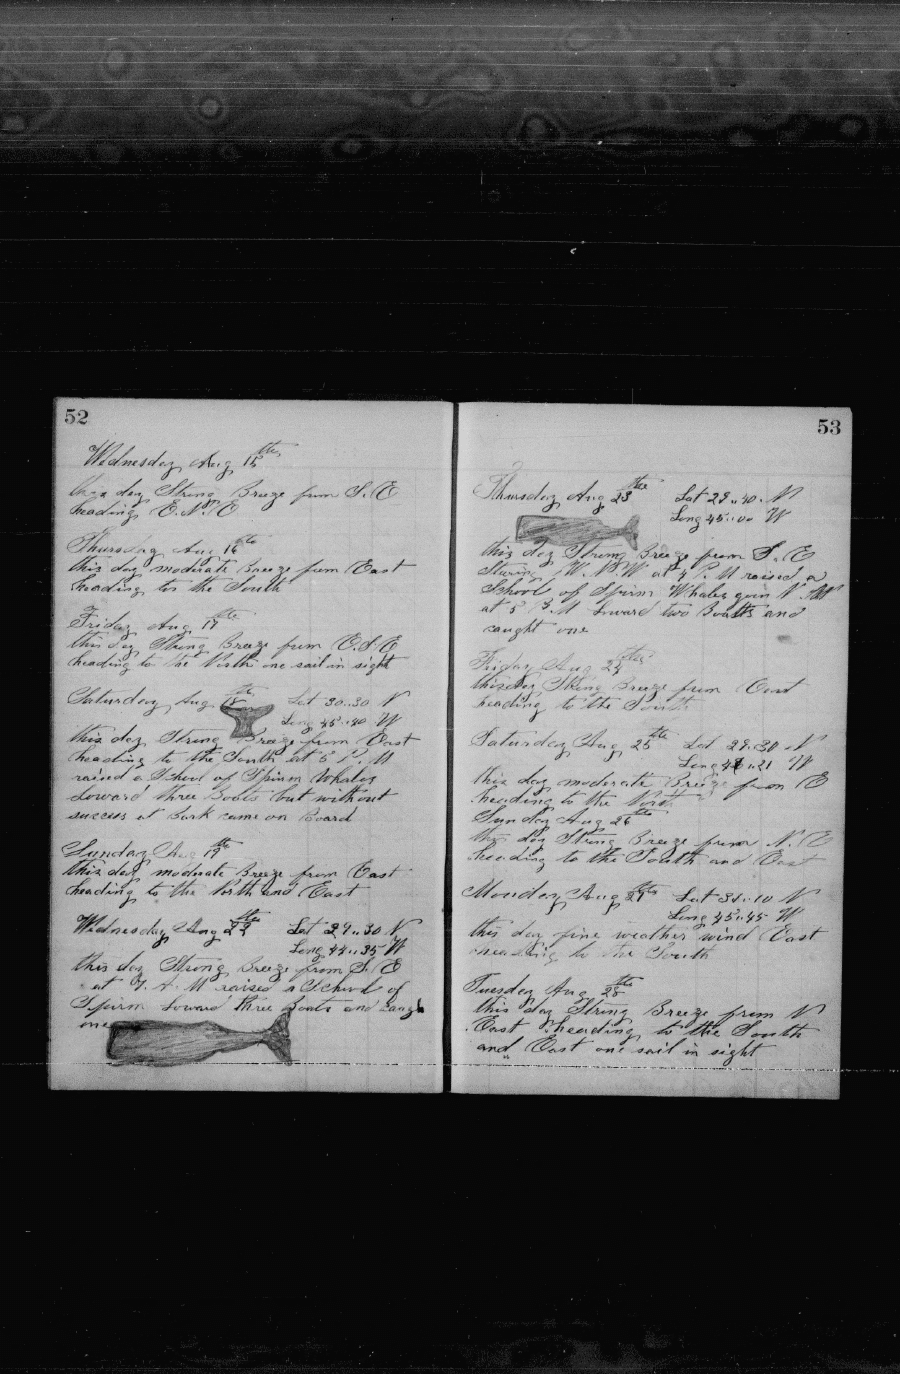 52
Wednesday Aug 15th
this day Strong Breeze from S. E
heading E. N. E
Thursday Aug 16th
this day moderate Breeze from East
heading to the South
Friday Aug 17th
this day Strong Breeze from E. S. E
heading to the North one sail in sight
Saturday Aug 18th Lat 30..30 N
Long 45..40 W
this day Strong Breeze from East
heading to the South at 5 P. M
raised a School of Spirm Whales
Loward three Boats but without
success at Dark came on Board
Sunday Aug 19th
this day moderate Breeze from East
heading to the North and East
Wednesday Aug 22th Lat 29..30 N
Long 44..35 W
this day Strong Breeze from S. E
at 7. A. M raised a School of
Spirm Loward three Boats and
one
53
Thursday Aug 23th Lat 29..40. N
Long 45..00 W
this day Strong Breeze from S. E
Stering W. N. W at 4 P. M raised a
School of Spirm Whales goin N. W
at 5 P. M Loward two Boats and
caught one
Friday Aug 24th
this day Strong Breeze from East
heading to the South
Saturday Aug 25th Lat 29..30 N
Long ..21 W
this day moderate Breeze from E
heading to the North
Sunday Aug 26th
this day Strong Breeze from N. E
heading to the South and East
Monday Aug 27th Lat 30..10 N
Long 45..45 W
this day fine weather wind East
heading to the South
Tuesday Aug 28th
this day Strong Breeze from N
East heading to the South
and East one sail in sight